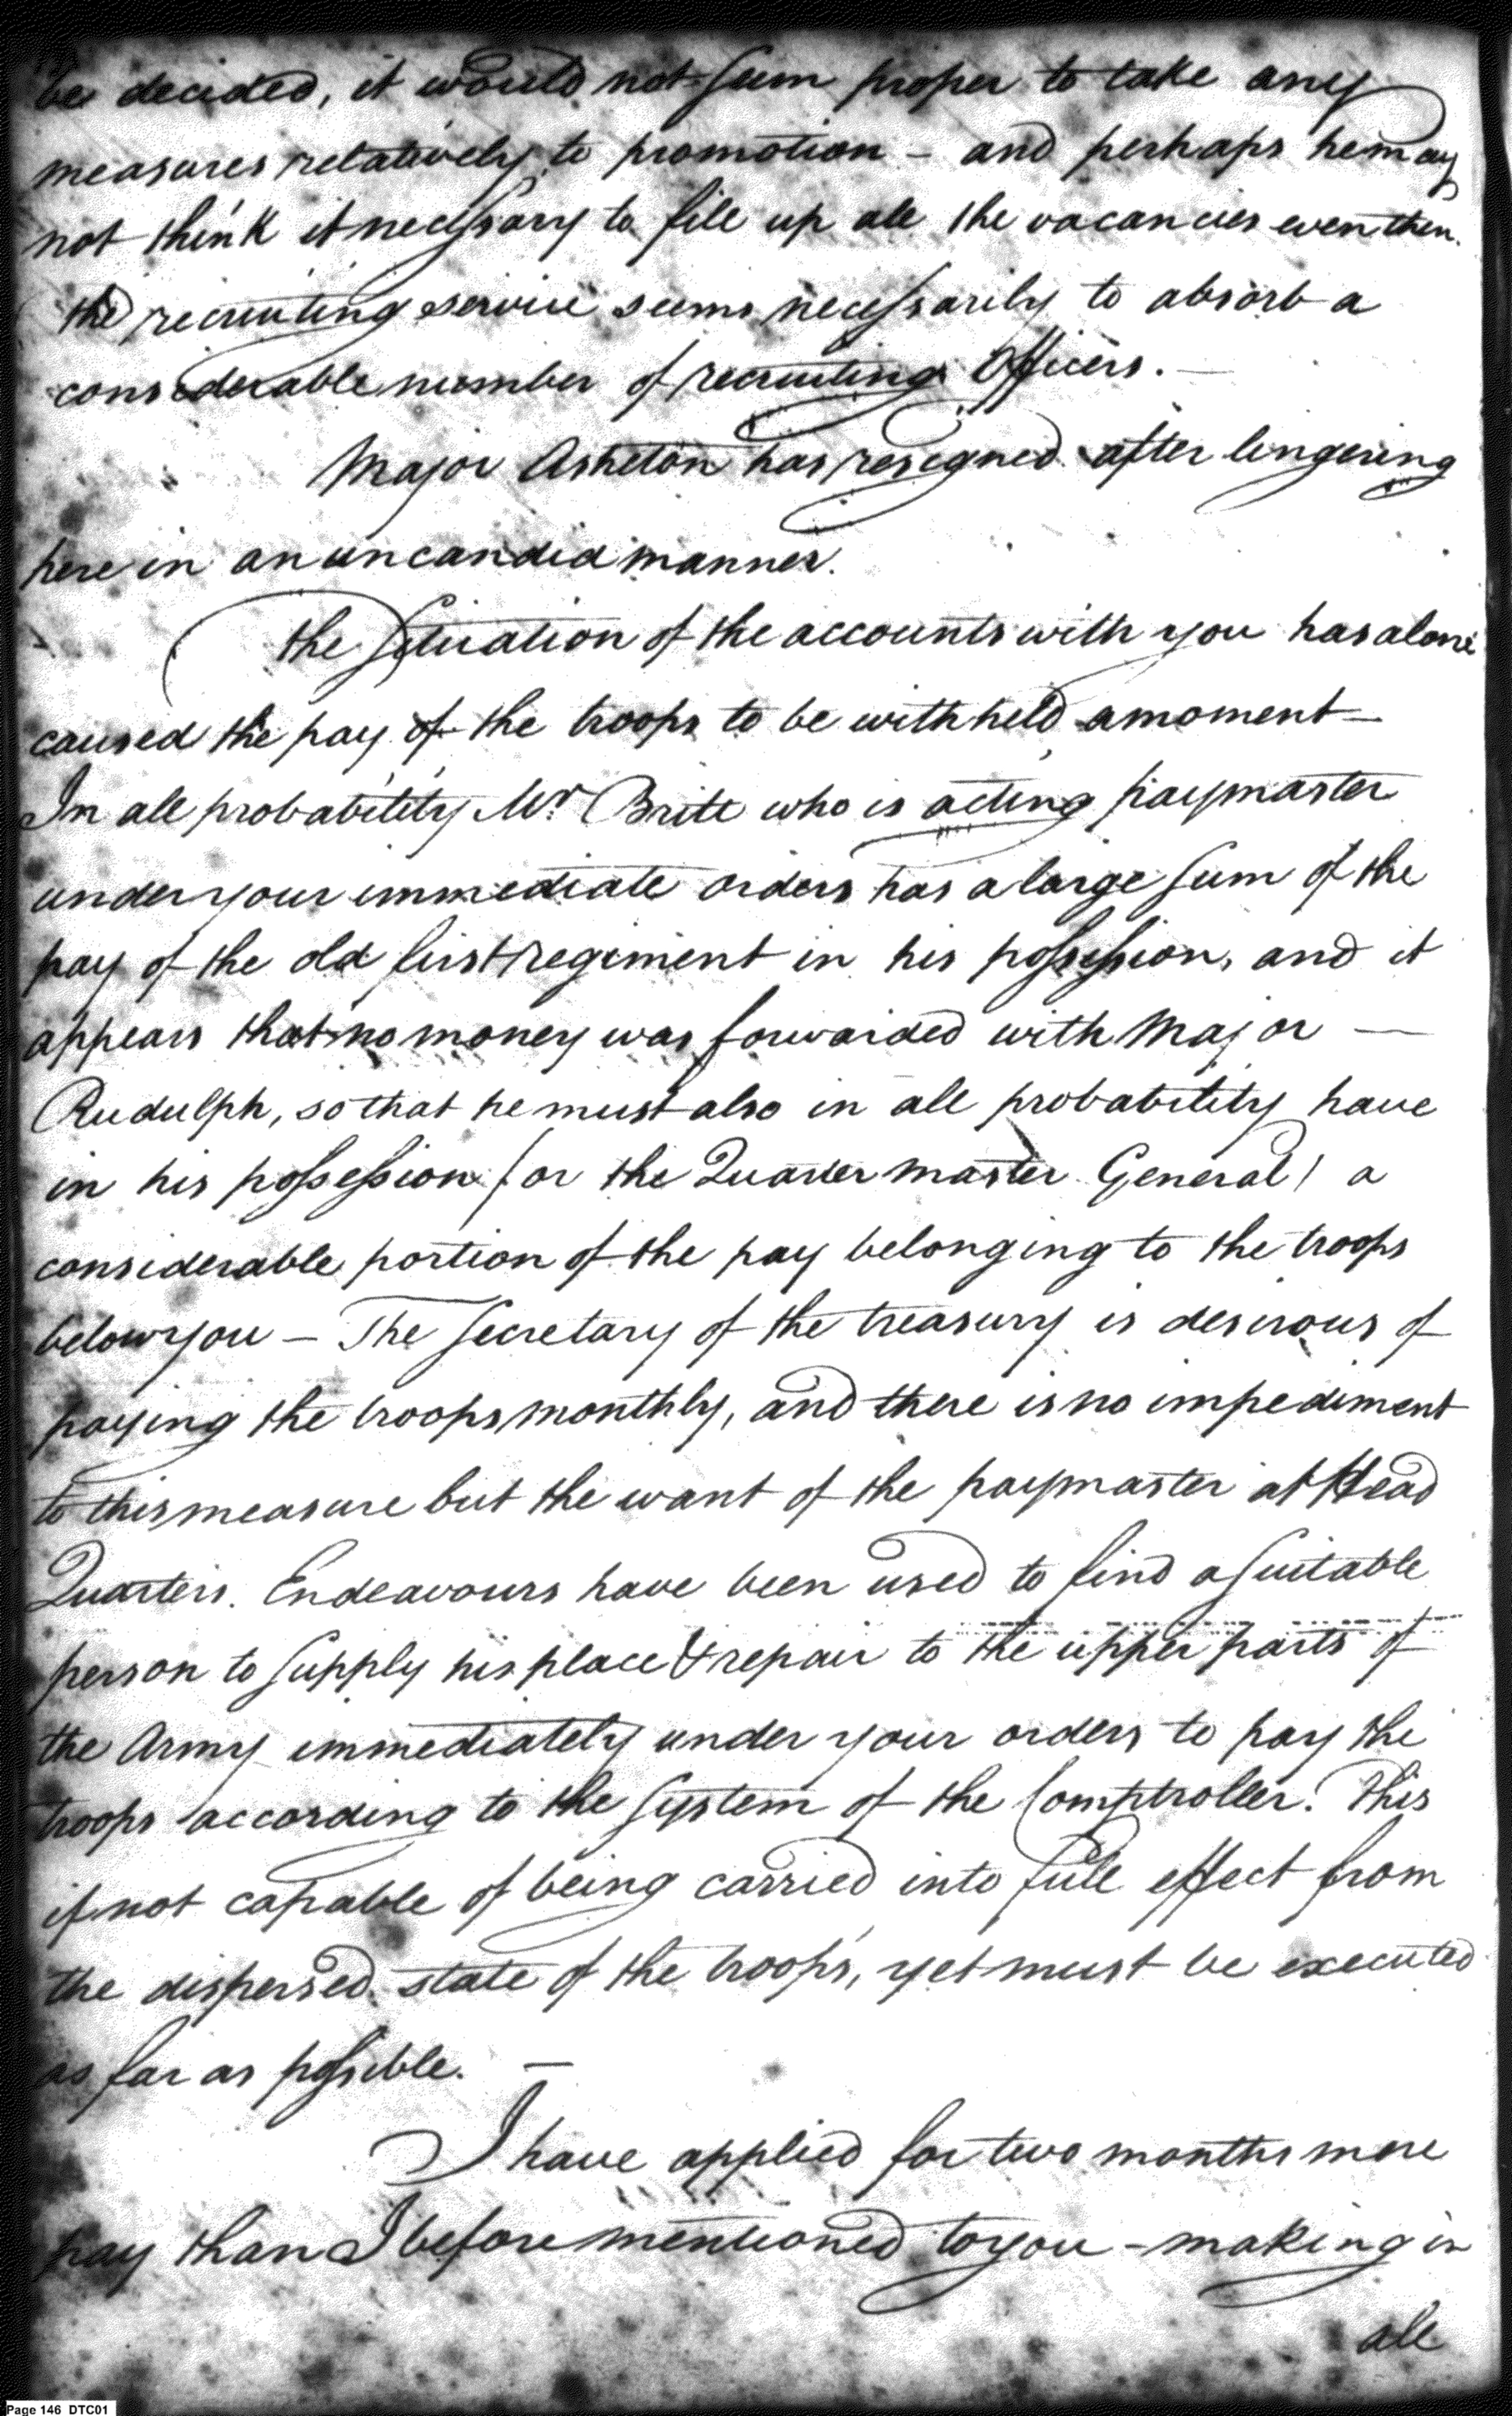 be decided, it would not seem proper to take any
measures relatively to promotion – and perhaps he may
not think it necessary to fill up all the vacancies even then.
the recruiting service seems necessarily to absorb a
considerable number of recruiting Officers. —
Major Asheton has resigned after lingering
here in an uncandid manner.
the situation of the accounts with you has alone
caused the pay of the troops to be withheld a moment —
In all probability Mr. Britt who is acting paymaster
under your immediate orders has a large sum of the
pay of the old first regiment in his possession, and it
appears that no money was forwarded with Major —
Rudulph, so that he must also in all probability have
in his possession (or the Quarter master General) a
considerable portion of the pay belonging to the troops
below you – The Secretary of the treasury is desirous of
paying the troops monthly, and there is no impediment
to this measure but the want of the paymaster at Head
Quarters. Endeavours have been used to find a suitable
person to supply his place & repair to the upper parts of
the Army immediately under your orders to pay the
troops according to the System of the Comptroller. This
if not capable of being carried into full effect from
the dispersed state of the troops, yet must be executed
as far as possible. —
I have applied for two months more
pay than I before mentioned to you – making in
all
Page 146 DTC01